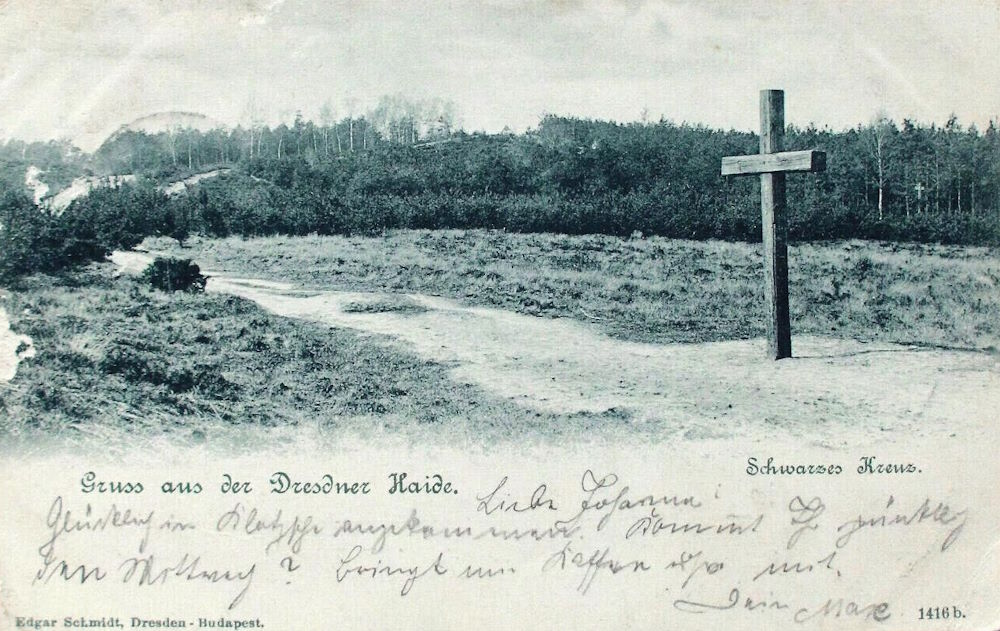 Schwarzes Kreuz.
Gruss aus der Dresdner Haide.
Liebe Johanna!
Glücklich in Klotzsche angekommen. Kommt Ihr pünktlich
den Mittwoch? Bringt nur Kaffee mit.
Dein Max
Edgar Schmidt, Dresden-Budapest.
1416 b.